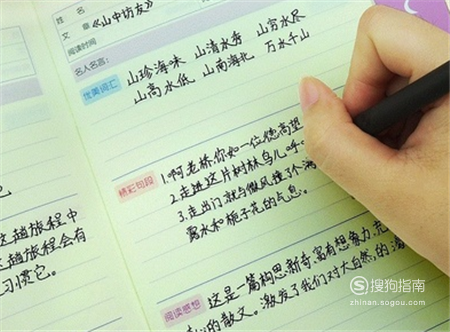 姓名
文章
《山中访友》
阅读时间
名人名言:
优美词汇
山珍海味 山清水秀 山穷水尽
山高水低 山南海北 万水千山
精彩句段
1.啊老桥你如一位德高望
2.走进这片树林鸟儿呼
3.走出门就与微风撞了个满
露水和栀子花的气息。
阅读感想
这是一篇构思新奇富有想象力充
心的散文。激发了我们对大自然的满
这趟旅程中
这趟旅程会有
习惯它。
搜狗指南
zhinan.sogou.com